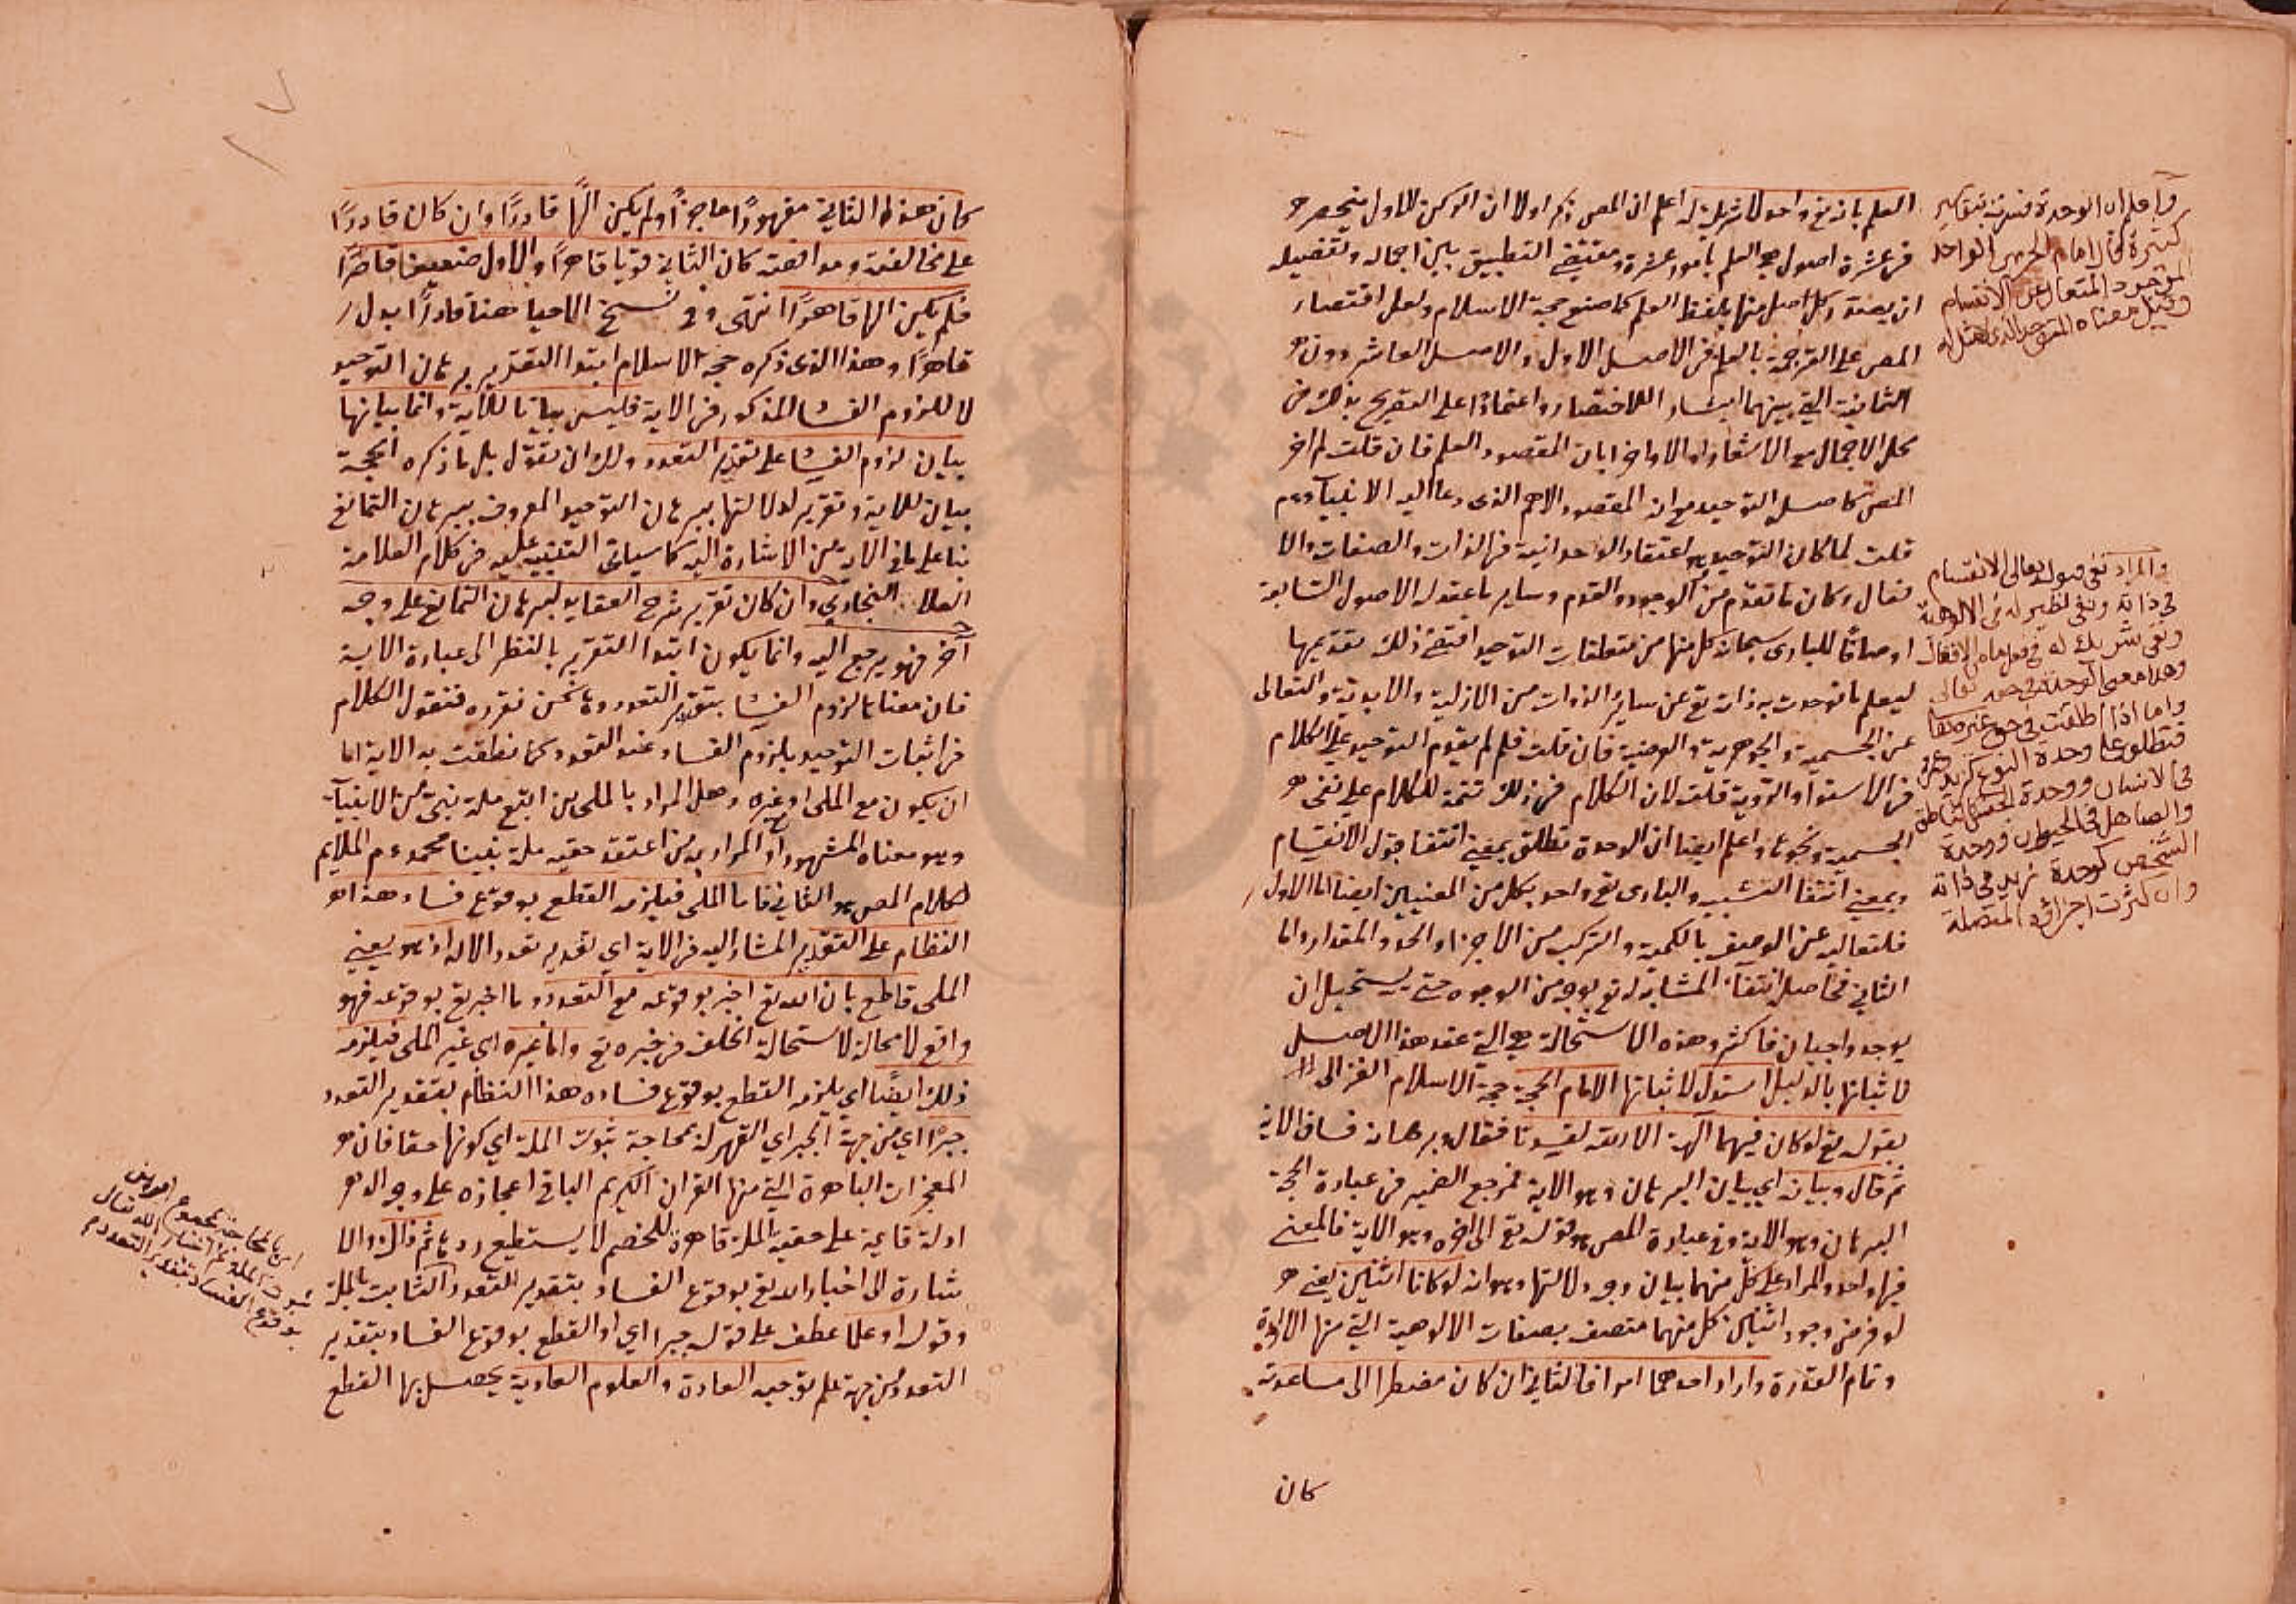 العلم بانه تع واحد لا شريك له اعلم ان المص ذكر اولا ان الركن الاول ينحصر
فى عشرة اصول هى العلم بامور عشرة ومقتضى التطبيق بين اجماله وتفصيله
ان يصدر كل اصل منها بلفظ العلم كما صنع حجة الاسلام ولعل اقتصار
المص على الترجمة بالعلم فى الاصل الاول والاصل العاشر دون
الثمانية التى بينهما ايثار اللاختصار واعتمادا على التصريح بذلك فى
محل الاجمال مع الاشعار اولا واخرا بان المقصود العلم فان قلت لم اخر
المص كاصله التوحيد مع انه المقصود الاهم الذى دعا اليه الانبياء عم
قلت لما كان التوحيد هو اعتقاد الوحدانية فى الذات والصفات والا
فعال وكان ما تقدم من الوجود والقدم وساير ما عقد له الاصول السابقة
اوصافا للبارى سبحانه كل منها من متعلقات التوحيد اقتضى ذلك تقديمها
ليعلم ما توحدت به ذاته تع عن سائر الذوات من الازلية والابدية والتعالى
عن الجسمية والجوهرية والعرضية فان قلت فلم لم يقدم التوحيد على الكلام
فى الاستوا والرؤية قلت لان الكلام فى ذلك تتمة للكلام على نفى
الجسمية ونحوها واعلم ايضا ان الوحدة تطلق بمعنى انتفا قبول الانقسام
وبمعنى انتفا الشبيه والبارى تع واحد بكل من المعنيين ايضا اما الاول
فلتعاليه عن الوصف بالكمية والتركب من الاجزا والحد والمقدار واما
الثانى فحاصله انتفاء المشابه له تع بوجه من الوجوه حتى يستحيل ان
يوجد واجبان فاكثر وهذه الاستحالة هى التى عقد هذا الاصل
لاثباتها بالدليل استدل لاثباتها الامام الحجة حجة الاسلام الغزالى
بقوله تع لو كان فيهما آلهة الا الله لفسدتا فقال وبرهانه فساق الاية
ثم قال وبيانه اى بيان البرهان وهو الاية فمرجع الضمير فى عبارة الحجة
البرهان وهو الاية وفى عبارة المص هو قوله تع الى اخره وهو الاية فالمعنى
فيهما واحد والمراد على كل منهما بيان وجه دلالتها وهو انه لو كانا اثنين يعنى
لو فرض وجود اثنين كل منهما متصف بصفات الالوهية التى منها الارادة
وتمام القدرة واراد احدهما امرا فالثانى ان كان مضطرا الى مساعدته
كان
واعلم ان الوحدة فسرت بتفاسير
كثيرة فقال امام الحرمين الواحد
الموجود المتعال عن الانقسام
وقيل معناه المتوحد الذى لا مثل له
والمراد نفى قبوله تعالى الانقسام
فى ذاته ونفى نظير له فى الالوهية
ونفى شريك له فى فعل ماله الافعال
وهذا معنى الوحدة فى حقه تعالى
واما اذا اطلقت فى حق غيره
فتطلق على وحدة النوع كزيد وعمرو
فى الانسان ووحدة الجنس كالناطق
والصاهل فى الحيوان ووحدة
الشخص كوحدة زيد فى ذاته
وان كثرت اجزاؤه المتصلة
كان هذا الثانى مقهورا عاجزا ولم يكن الها قادرا وان كان قادرا
على مخالفته ومدافعته كان الثانى قويا قاهرا والاول ضعيفا قاصرا
فلم يكن الها قاهرا انتهى وفى نسخ الاحيا هنا قادرا بدل
قاهرا وهذا الذى ذكره حجة الاسلام ابتدا التقدير برهان التوحيد
لا للزوم الفسا المذكور فى الاية فليس بيانا للاية وانما بيانها
بيان لزوم الفسا على تقدير التعدد ولك ان تقول بل ما ذكره الحجة
بيان للاية وتقرير لدلالتها ببرهان التوحيد المعروف ببرهان التمانع
بنا على ما فى الاية من الاشارة اليه كما سياتى التنبيه عليه فى كلام العلامة
العلا البخارى وان كان تقرير شرح العقايد لبرهان التمانع على وجه
آخر فهو يرجع اليه وانما يكون ابتدا التقرير بالنظر الى عبارة الاية
فان معناها لزوم الفسا بتقدير التعدد وها نحن نقرره فنقول الكلام
فى اثبات التوحيد بلزوم الفساد عند التعدد كما نطقت به الاية اما
ان يكون مع الملى او غيره وهل المراد بالملى من اتبع ملة نبى من الانبياء
وهو معناه المشهور او المراد به من اعتقد حقيه ملة نبينا محمد عم الملايم
لكلام المص هو الثانى فاما الملى فيلزمه القطع بوقوع فساد هذا
النظام على التقدير المشار اليه فى الاية اى تقدير تعدد الاله اذ هو يعنى
الملى قاطع بان الله تع اخبر بوقوعه مع التعدد وما اخبر تع بوقوعه فهو
واقع لا محالة لاستحالة الخلف فى خبره تع واما غيره اى غير الملى فيلزمه
ذلك ايضا اى يلزمه القطع بوقوع فساد هذا النظام بتقدير التعدد
جبرا اى من جهة الجبر اى القهر له بمحاجة ثبوت الملة اى كونها حقا فان
المعجزات الباهرة التى منها القران الكريم الباقى اعجازه على وجه الدهر
ادلة قايمة على حقية الملة قاهرة للخصم لا يستطيع ردها ثم ذاك والا
شارة الى اخبار الله تع بوقوع الفساد بتقدير التعدد الثابت بالملة
وقوله او علما عطف على قوله جبرا اى او القطع بوقوع الفساد بتقدير
التعدد من جهة علم توجبه العادة والعلوم العادية يحصل بها القطع
اى بمحاجة مجموع امرين
ثبوت الملة ثم اخبار الله تعالى
بوقوع الفساد بتقدير التعدد